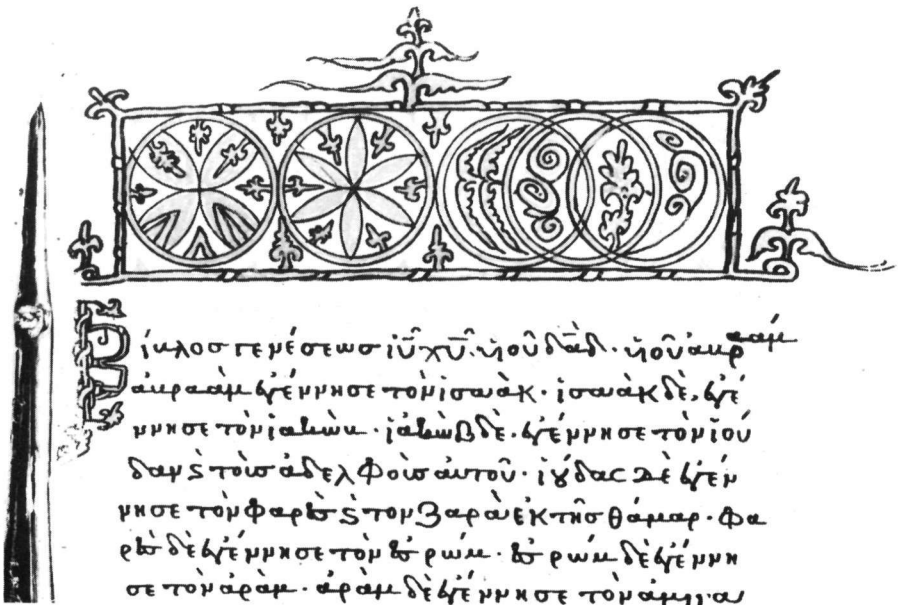 Βίβλος γενέσεως ἰῦ χῦ· ὑιοῦ δᾱδ· ὑιοῦ ἀβραάμ
ἀβραὰμ ἐγέννησε τὸν ἰσαάκ· ἰσαὰκ δὲ, ἐγέ
ννησε τὸν ἰακώβ· ἰακὼβ δὲ, ἐγέννησε τὸν ἰού
δαν ϛ τοὺσ ἀδελφοὺσ ἀυτοῦ· ἰούδας δὲ ἐγέν
νησε τὸν φαρὲσ ϛ τὸν ζαρὰ ἐκ τῆσ θάμαρ· φα
ρὲσ δὲ ἐγέννησε τὸν ἐσρώμ· ἐσρώμ δὲ ἐγέννη
σε τὸν ἀράμ· ἀρὰμ δὲ ἐγέννησε τὸν ἀμινα